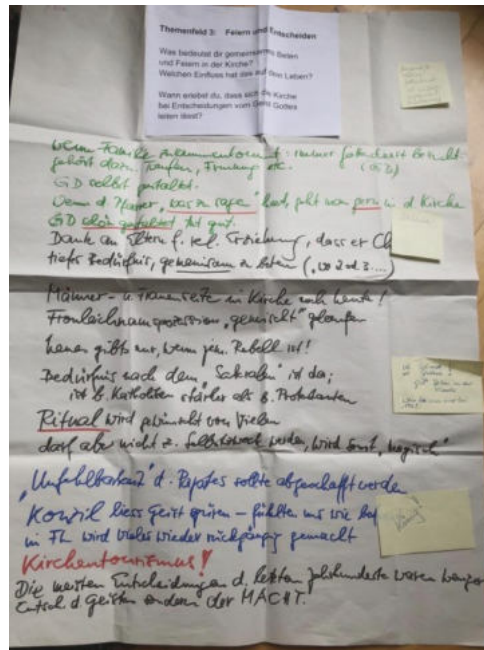 Themenfeld 3: Feiern und Entscheiden
Was bedeutet dir gemeinsames Beten
und Feiern in der Kirche?
Welchen Einfluss hat das auf dein Leben?
Wann erlebst du, dass sich die Kirche
bei Entscheidungen vom Geist Gottes
leiten lässt?
Wenn Familie zusammenkommt:
gehört dazu. Taufen, Firmung etc.
GD selbst gestaltet.
Wenn d. Pfarrer "was zu sagen" hat, geht man gern in d. Kirche
GD schön gestaltet tut gut.
Dank an Eltern f. rel. Erziehung, dass er
tiefes Bedürfnis, gemeinsam zu beten (, wo 2 od. 3....)
Männer- u. Frauenseite in Kirche noch heute!
Fronleichnamsprozession "gemischt" gelaufen
gibts nur, wenn jem. Rebell ist!
Bedürfnis nach dem "Sakralen" ist da;
ist b. Katholiken stärker als b. Protestanten
Ritual wird gewünscht von Vielen
darf aber nicht z. Selbstzweck werden, wird sonst "magisch"
"Unfehlbarkeit" d. Papstes sollte abgeschafft werden
Konzil liess Geist spüren – fühlten uns wie
in FL wird vieles wieder rückgängig gemacht
Kirchentourismus!
Die meisten Entscheidungen d. letzten Jahrhunderte waren weniger
Entsch. d. Geistes sondern der MACHT!